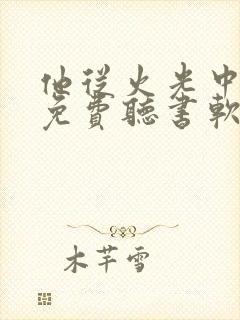 他從火光中
免費聽書軟
木芊雪